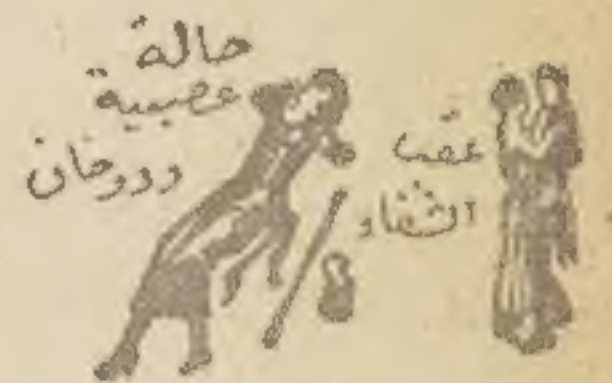 حالة
عصبية
ودوخان
عصا
الشفاء